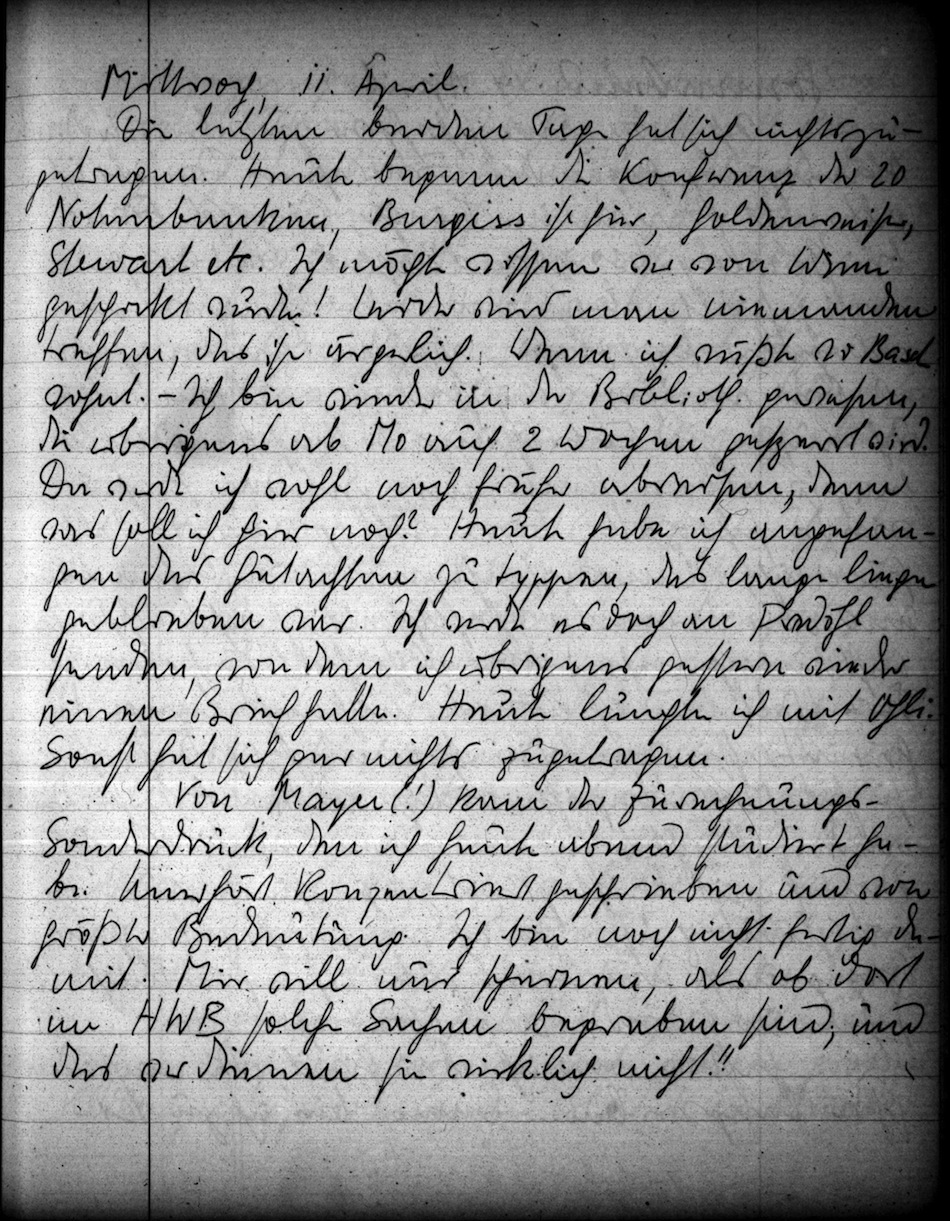 Mittwoch, 11. April.
Die letzten beiden Tage hat sich nichts zu-
getragen. Heute begann die Konferenz der 20
Notenbanken, Burgess ist hier, Goldenweiser,
Stewart etc. Ich möchte wissen wer von Wien
geschickt würde! Leider wird man niemanden
treffen, das ist ärgerlich. Wenn ich wüßte wo Basel
wohnt. – Ich bin wieder in der Biblioth. gewesen,
die übrigens ab Mo auf 2 Wochen gesperrt wird.
Da werde ich wohl noch früher abreisen, denn
was soll ich hier noch? Heute habe ich angefan-
gen das Gutachten zu typpen, das lange liegen
geblieben war. Ich werde es doch an Predöhl
senden, von dem ich übrigens gestern wieder
einen Brief hatte. Heute lunchte ich mit Ohli.
Sonst hat sich gar nichts zugetragen.
Von Mayer (!) kam der Zurechnungs-
Sonderdruck, den ich heute abend studiert ha-
be. Unerhört konzentriert geschrieben und von
größter Bedeutung. Ich bin noch nicht fertig da-
mit. Mir will nur scheinen, als ob dort
im HWB solche Sachen begraben sind, und
das verdienen sie wirklich nicht!!